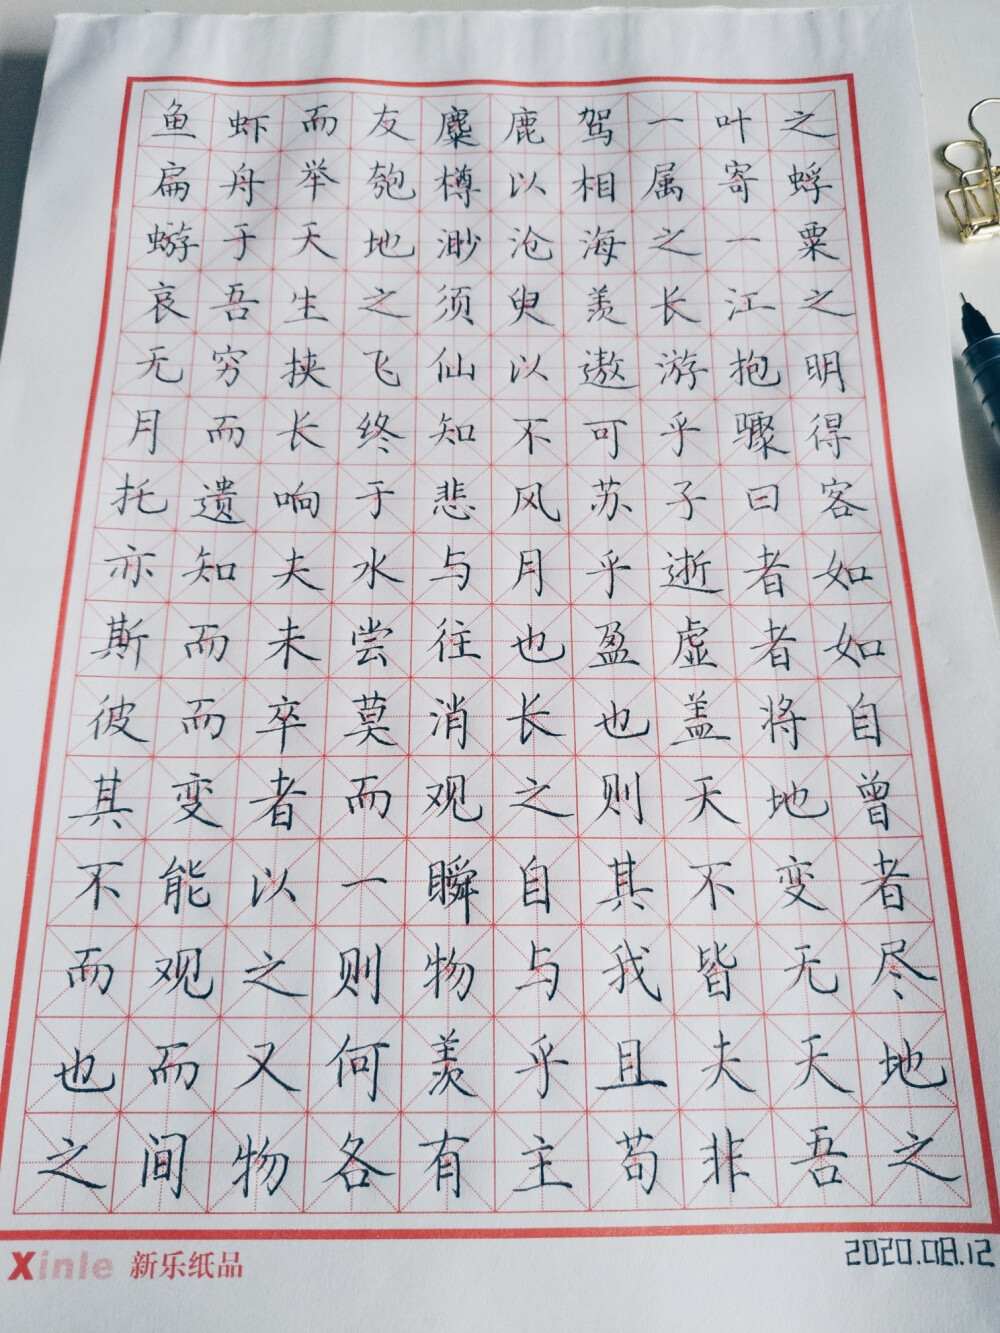 鱼虾而友麋鹿驾一叶之
扁舟举匏樽以相属寄蜉
蝣于天地渺沧海之一粟
哀吾生之须臾羡长江之
无穷挟飞仙以遨游抱明
月而长终知不可乎骤得
托遗响于悲风苏子曰客
亦知夫水与月乎逝者如
斯而未尝往也盈虚者如
彼而卒莫消长也盖将自
其变者而观之则天地曾
不能以一瞬自其不变者
而观之则物与我皆无尽
也而又何羡乎且夫天地
之间物各有主苟非吾之
Xinle 新乐纸品
2020.08.12